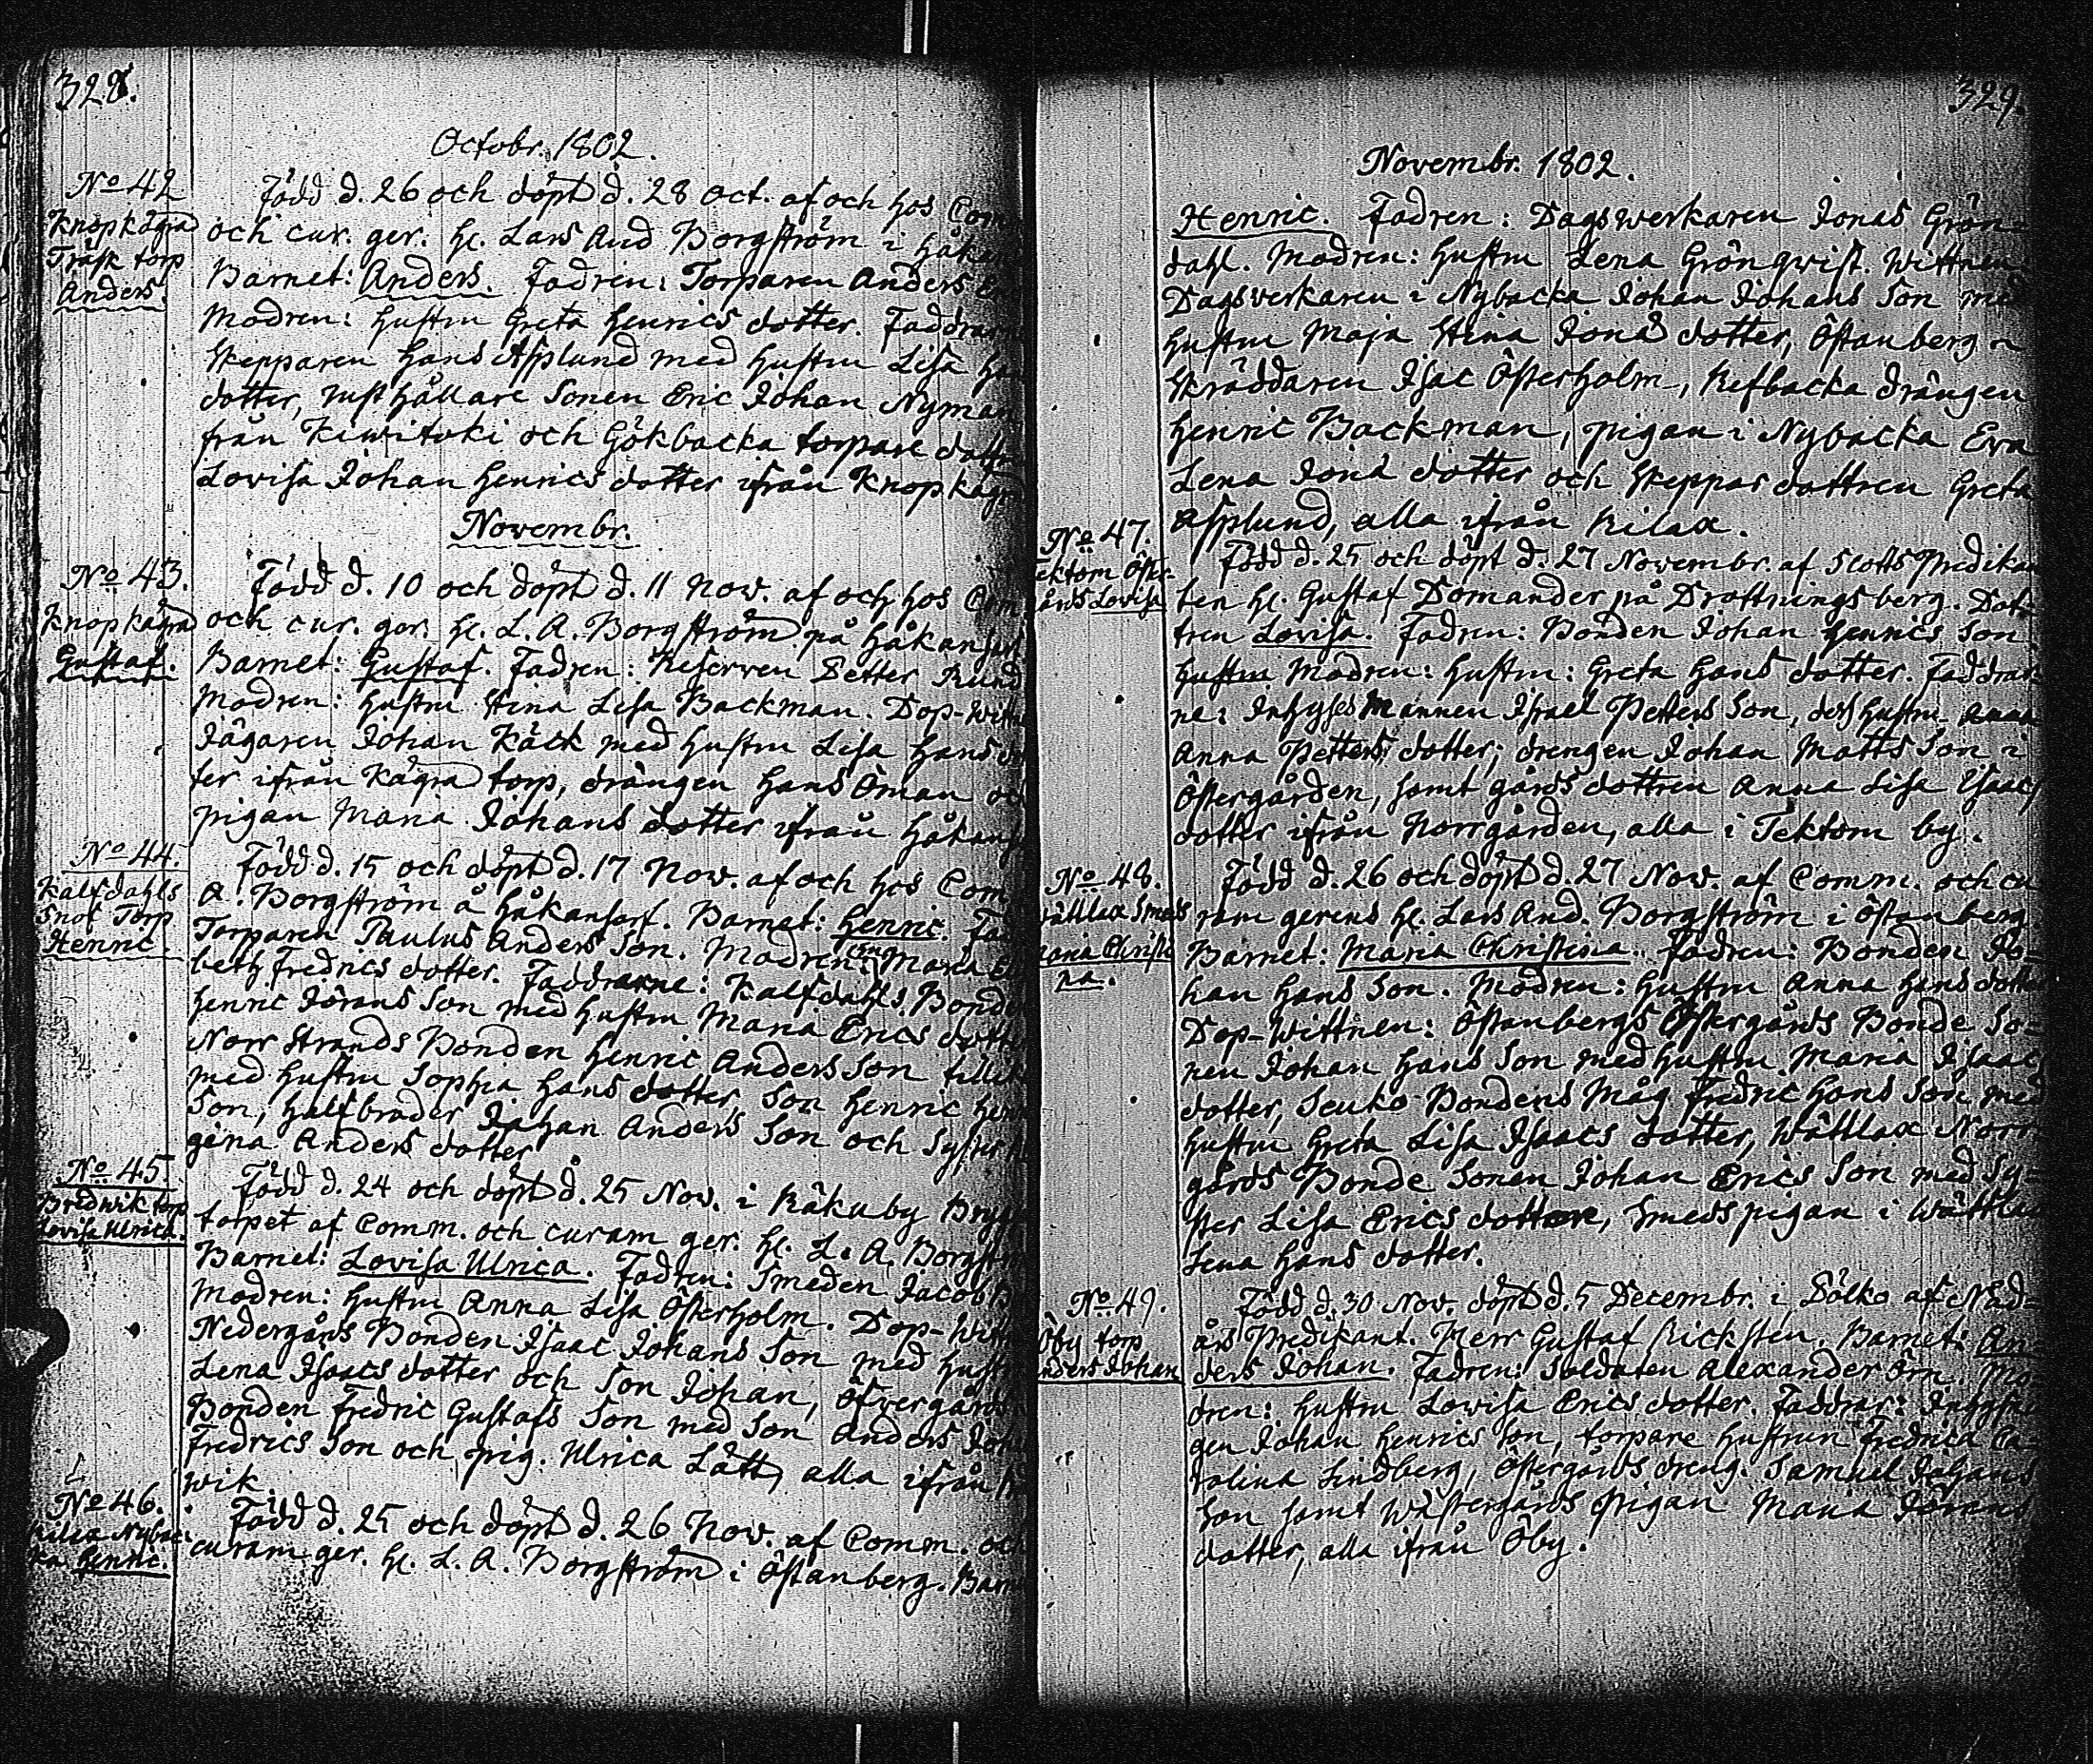 328.
Octobr. 1802.
No 42
Knopkägra
Träsk torp
Anders.
Född d. 26 och döpt d. 28 Oct. af och hos Com
och cur. ger. H. Lars And Borgström i Håkan
Barnet: Anders. Fadren: Torparen Anders
Modren: Hustru Greta Henrics dotter. Faddrar
Skepparen Hans Asplund med Hustru Lisa
dotter, rusthållare Sonen Eric Johan Nyman
från Kiwitoki och Gökbacka torpare dott
Lovisa Johan Henrics dotter ifrån Knopkägra
Novembr.
No 43.
Knopkägra
Gustaf.
Född d. 10 och döpt d. 11 Nov. af och hos Com
och cur. ger. H. L. A. Borgström på Håkansarf
Barnet: Gustaf. Fadren: Reserven Petter Rund
Modren: Hustru Stina Lisa Backman. Dop-Witt
Jägaren Johan Käck med Hustru Lisa Hans dot
ter ifrån Kägra torp, drängen Hans Öman och
pigan Maria Johans dotter ifrån Håkans
No 44.
Kalfdahls
Torp
Henric.
Född d. 15 och döpt d. 17 Nov. af och hos Com
A. Borgström å Håkansarf. Barnet: Henric. Fad
Torparen Paulus Anders Son. Modren: Maria
beth Fredrics dotter. Faddrarne: Kalfdahls Bonde
Henric Jörans Son med Hustru Maria Erics dotter
Norr Strands Bonden Henric Anders Son
med Hustru Sophia Hans dotter, Son Henric
Son, halfbroder Johan Anders Son och Syster
gina Anders dotter
No 45.
Bredwik torp
Lovisa Ulrica.
Född d. 24 och döpt d. 25 Nov. i Råkuby Brygg
torpet af Comm. och curam ger. H. L. A. Borgström
Barnet: Lovisa Ulrica. Fadren: Smeden Jacob
Modren: Hustru Anna Lisa Österholm. Dop-Witt
Nedergårds Bonden Isaac Johans Son med Hust
Lena Isaacs dotter och Son Johan, Öfvergårds
Bonden Fredric Gustafs Son med Son Anders
Fredrics Son och pig. Ulrica Lätt, alla ifrån
wik.
No 46.
Kilax Nybac-
ka. Henric.
Född d. 25 och döpt d. 26 Nov. af Comm. och
curam ger. H. L. A. Borgström i Östanberg. Barn
329.
Novembr. 1802.
Henric. Fadren: Dagswerkaren Jonas Grön-
dahl. Modren: Hustru Lena Grönqwist. Wittnen
Dagsverkaren i Nybacka Johan Johans Son med
Hustru Maja Stina Jonæ dotter, Östanberg
Skräddaren Isac Österholm, Refbacka drängen
Henric Backman, pigan i Nybacka Eva
Lena Jonæ dotter och Skeppar dottren Greta
Asplund, alla ifrån Kilax.
No 47.
Tektom Öster
gårds Lovisa
Född d. 25 och döpt d. 27 Novembr. af Slotts Predikan
ten H. Gustaf Domander på Drottningsberg. Dot-
tren Lovisa. Fadren: Bonden Johan Henrics Son.
Hustru Modren: Hustru: Greta Hans dotter. Faddrar-
ne: Inhyses Mannen Israel Petters Son, dess Hustru Anna
Anna Petters dotter; drengen Johan Matts Son i
Östergården, samt gårds dottren Anna Lisa Isaacs
dotter ifrån Norrgården, alla i Tektom by.
No 48.
Wättlax Smeds
Maria Christi
na.
Född d. 26 och döpt d. 27 Nov. af Comm. och cu
ram gerens H. Lars And. Borgström i Östanberg
Barnet: Maria Christina. Fadren: Bonden Jo-
han Hans Son. Modren: Hustru Anna Hans dotter
Dop-Wittnen: Östanbergs Östergårds Bonde So-
nen Johan Hans Son med Hustru Maria Isaacs
dotter, Scuko Bondens Måg Fredric Hans Son med
Hustru Greta Lisa Isaacs dotter, Wättlax Norr
gårds Bonde Sonen Johan Erics Son med Sy-
ster Lisa Erics dotter, Smeds pigan i Wättlax
Lena Hans dotter.
No 49.
Öby torp
Anders Johan
Född d. 30 Nov. döpt d. 5 Decembr. i Pölko af Nåd-
års Predikant. Herr Gustaf Ricksten. Barnet: An-
ders Johan. Fadren: Soldaten Alexander Örn. Mo-
dren: Hustru Lovisa Erics dotter. Faddrar: Inhyses
gen Johan Henrics Son, torpare Hustrun Fredrica Ca-
rolina Lindberg, Östergårds dreng. Samuel Johans
Son samt Wästergårds Pigan Maria Jörans
dotter, alla ifrån Öby.